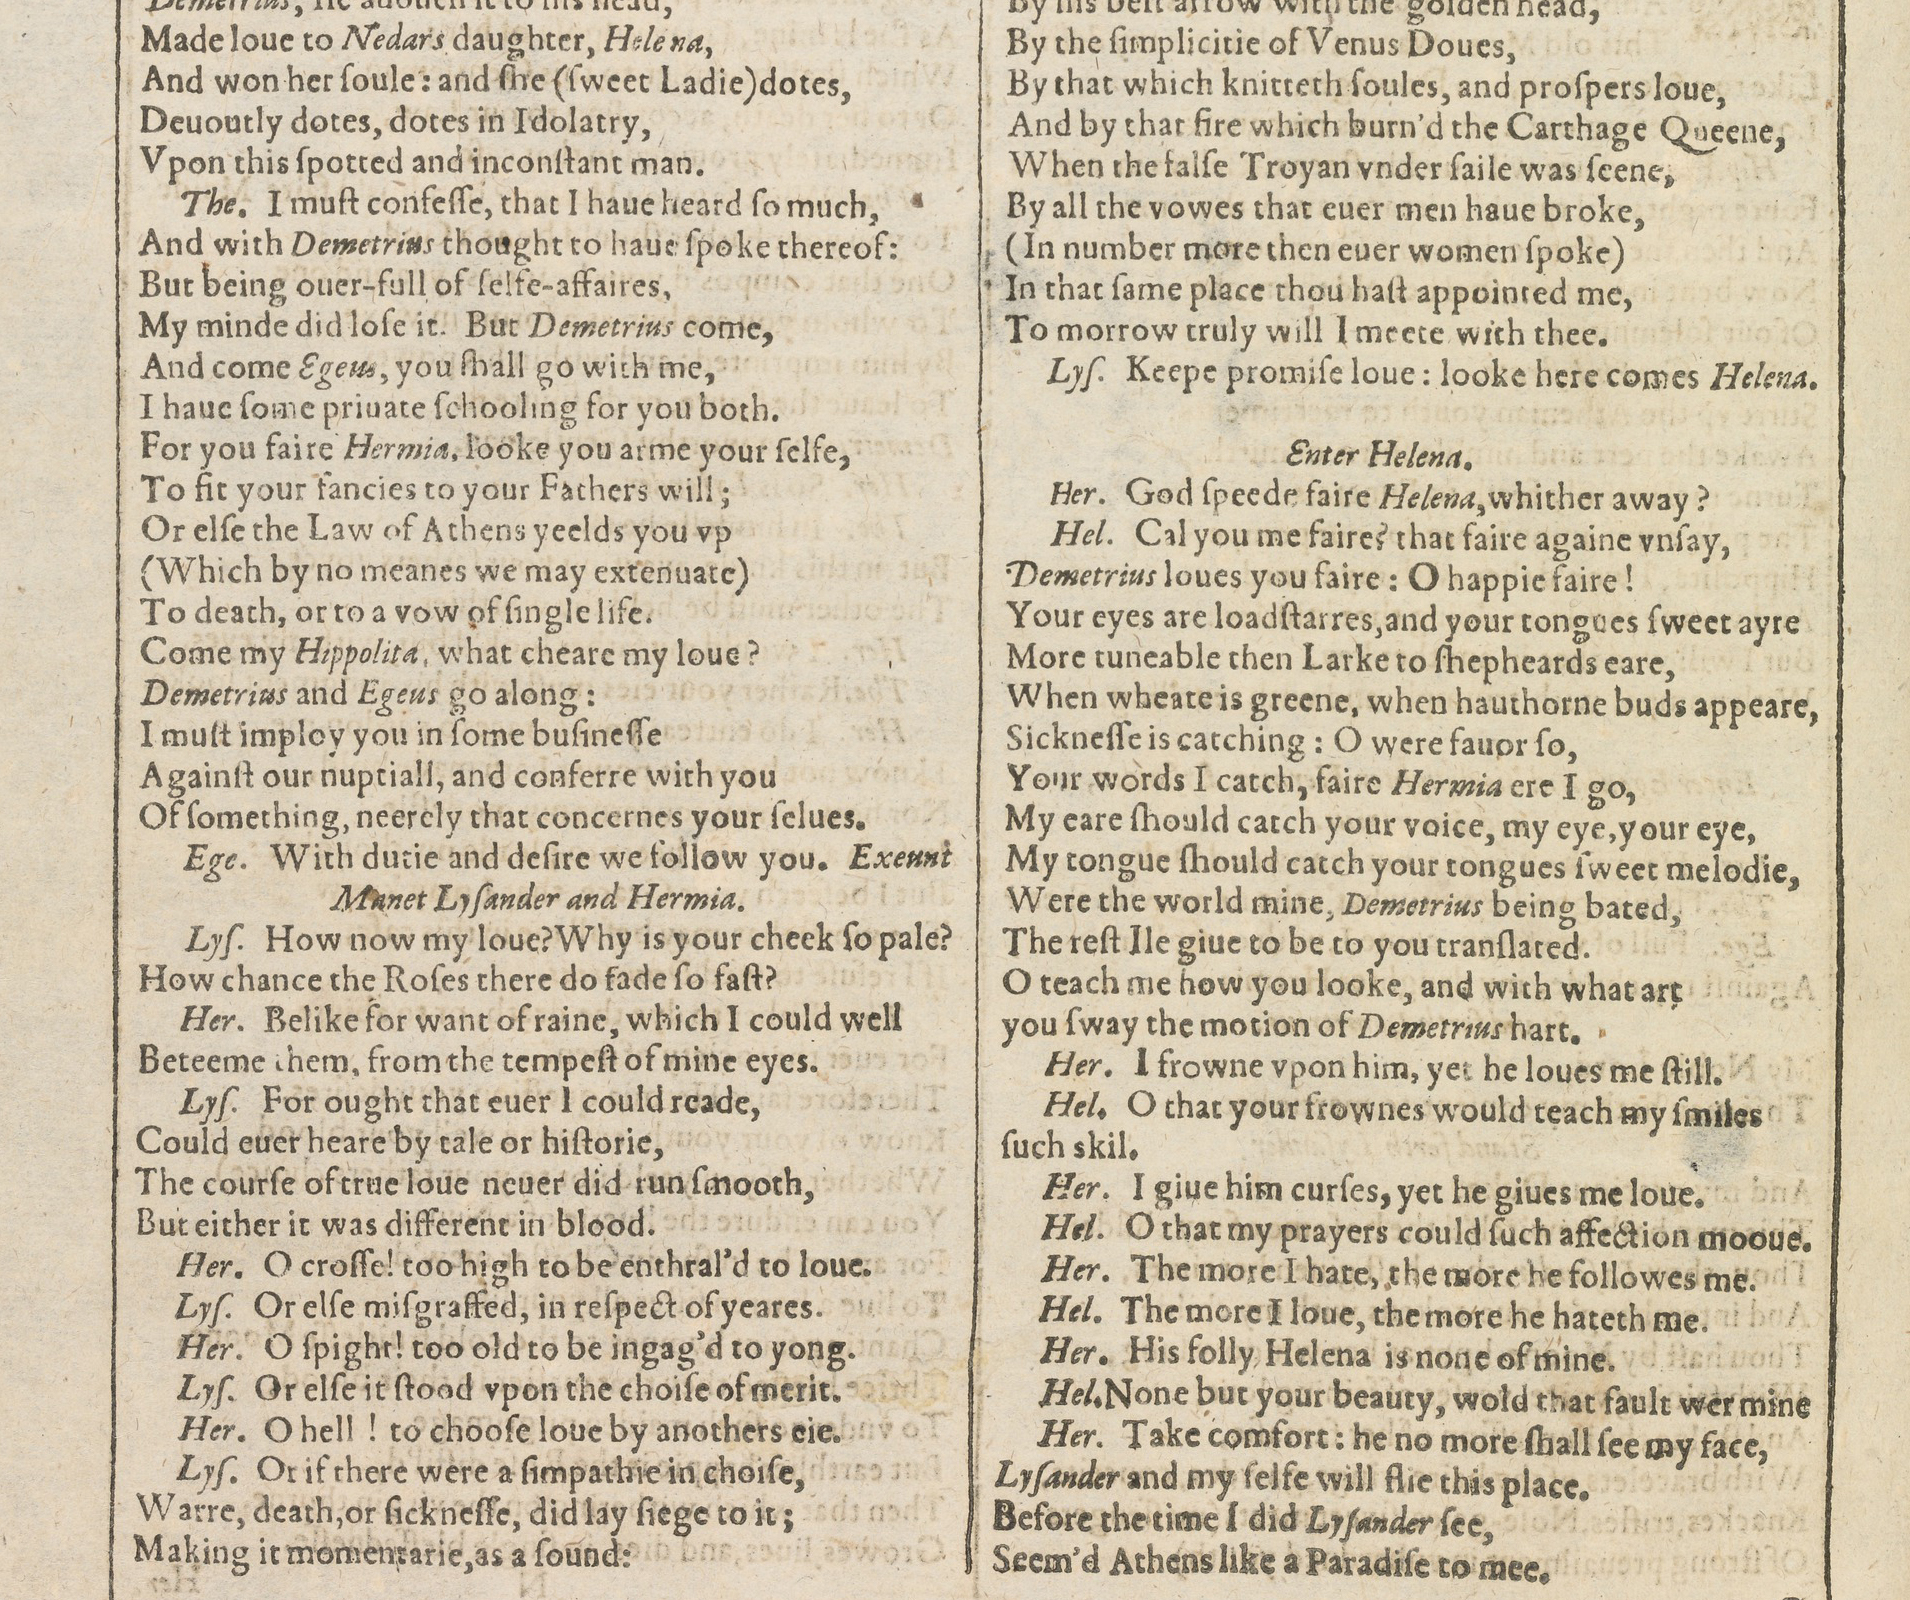 Demetrius, Ile auouch it to his head,
Made loue to Nedars daughter, Helena,
And won her ſoule: and ſhe (ſweet Ladie) dotes,
Deuoutly dotes, dotes in Idolatry,
Vpon this ſpotted and inconſtant man.
The. I muſt confeſſe, that I haue heard ſo much,
And with Demetrius thought to haue ſpoke thereof:
But being ouer-full of ſelfe-affaires,
My minde did loſe it. But Demetrius come,
And come Egeus, you ſhall go with me,
I haue ſome priuate ſchooling for you both.
For you faire Hermia, looke you arme your ſelfe,
To fit your fancies to your Fathers will;
Or elſe the Law of Athens yeelds you vp
(Which by no meanes we may extenuate)
To death, or to a vow of ſingle life.
Come my Hippolita, what cheare my loue?
Demetrius and Egeus go along:
I muſt imploy you in ſome buſineſſe
Againſt our nuptiall, and conferre with you
Of ſomething, neerely that concernes your ſelues.
Ege. With dutie and deſire we follow you. Exeunt
Manet Lyſander and Hermia.
Lyſ. How now my loue? Why is your cheek ſo pale?
How chance the Roſes there do fade ſo faſt?
Her. Belike for want of raine, which I could well
Beteeme them, from the tempeſt of mine eyes.
Lyſ. For ought that euer I could reade,
Could euer heare by tale or hiſtorie,
The courſe of true loue neuer did run ſmooth,
But either it was different in blood.
Her. O croſſe! too high to be enthral'd to loue.
Lyſ. Or elſe miſgraffed, in reſpect of yeares.
Her. O ſpight! too old to be ingag'd to yong.
Lyſ. Or elſe it ſtood vpon the choiſe of merit.
Her. O hell! to chooſe loue by anothers eie.
Lyſ. Or if there were a ſimpathie in choiſe,
Warre, death, or ſickneſſe, did lay ſiege to it;
Making it momentarie, as a ſound:
By his beſt arrow with the golden head,
By the ſimplicitie of Venus Doues,
By that which knitteth ſoules, and proſpers loue,
And by that fire which burn'd the Carthage Queene,
When the falſe Troyan vnder ſaile was ſeene,
By all the vowes that euer men haue broke,
(In number more then euer women ſpoke)
In that ſame place thou haſt appointed me,
To morrow truly will I meete with thee.
Lyſ. Keepe promiſe loue: looke here comes Helena.
Enter Helena.
Her. God ſpeede faire Helena, whither away?
Hel. Cal you me faire? that faire againe vnſay,
Demetrius loues you faire: O happie faire!
Your eyes are loadſtarres, and your tongues ſweet ayre
More tuneable then Larke to ſhepheards eare,
When wheate is greene, when hauthorne buds appeare,
Sickneſſe is catching: O were fauor ſo,
Your words I catch, faire Hermia ere I go,
My eare ſhould catch your voice, my eye, your eye,
My tongue ſhould catch your tongues ſweet melodie,
Were the world mine, Demetrius being bated,
The reſt Ile giue to be to you tranſlated.
O teach me how you looke, and with what art
you ſway the motion of Demetrius hart.
Her. I frowne vpon him, yet he loues me ſtill.
Hel. O that your frownes would teach my ſmiles
ſuch skil.
Her. I giue him curſes, yet he giues me loue.
Hel. O that my prayers could ſuch affection mooue.
Her. The more I hate, the more he followes me.
Hel. The more I loue, the more he hateth me.
Her. His folly Helena is none of mine.
Hel. None but your beauty, wold that fault wer mine
Her. Take comfort: he no more ſhall ſee my face,
Lyſander and my ſelfe will flie this place.
Before the time I did Lyſander ſee,
Seem'd Athens like a Paradiſe to mee.